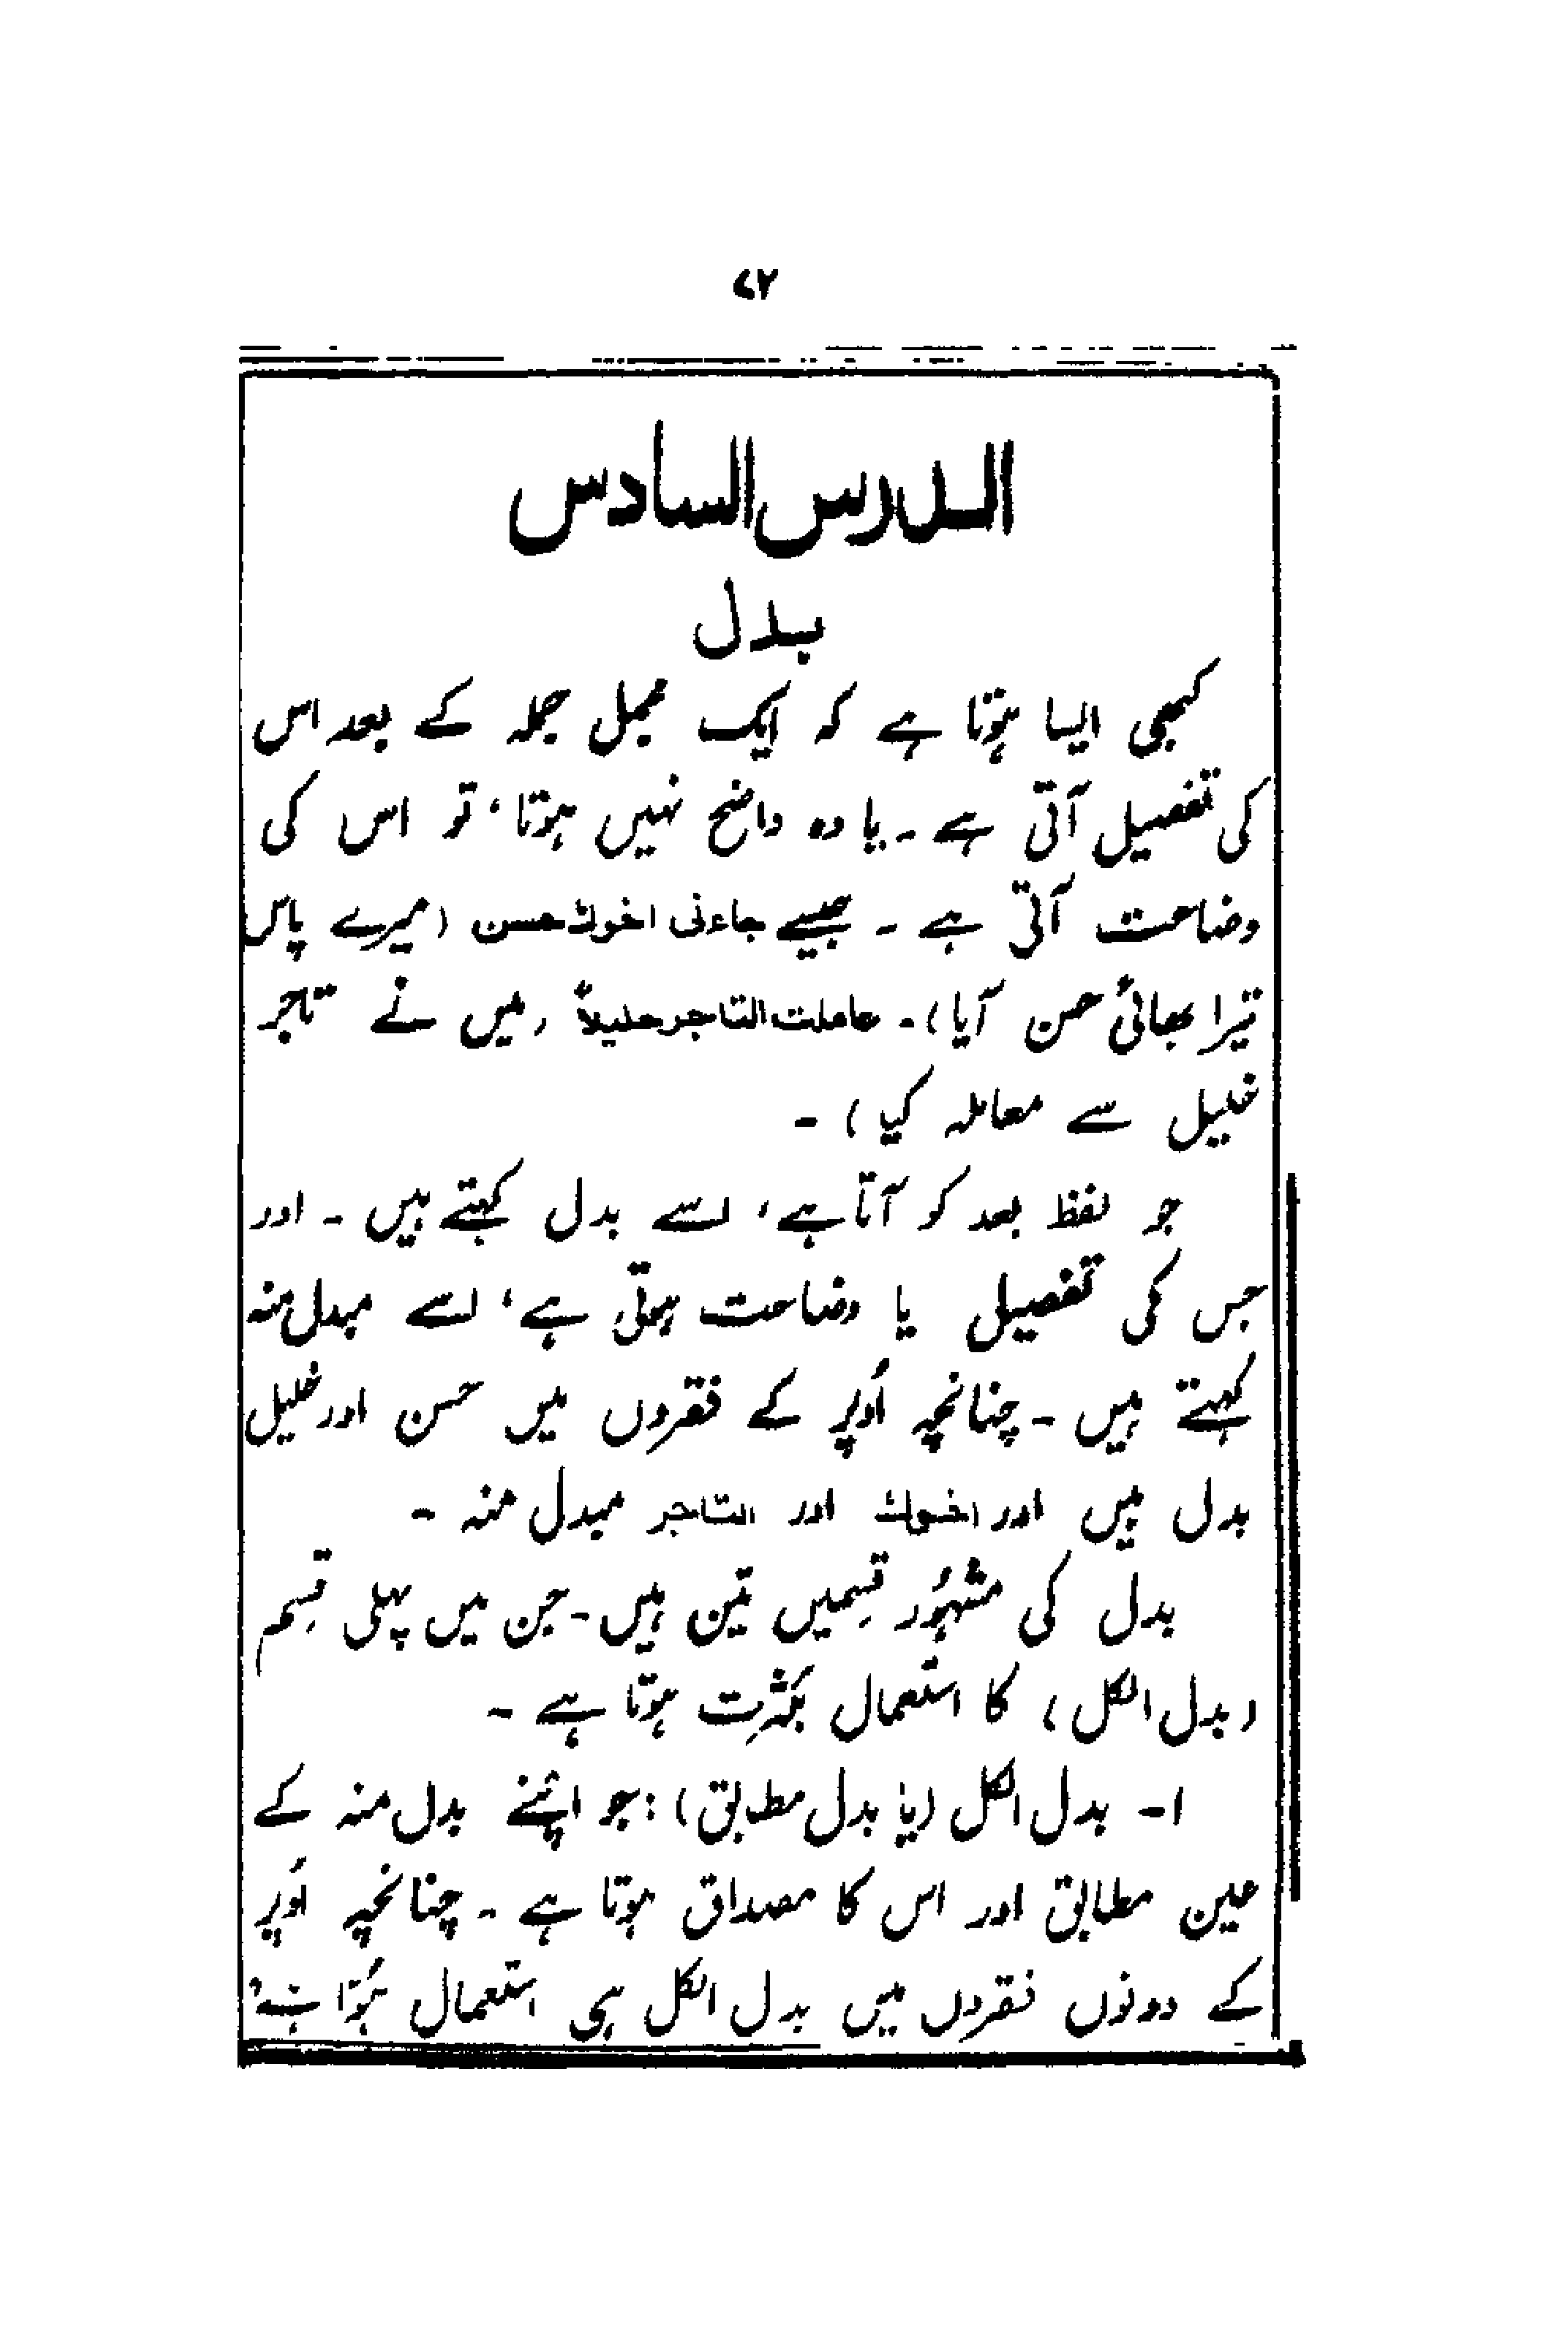 ۷۲
الدرس السادس
بدل
کبھی ایسا ہوتا ہے کہ ایک مجمل جملہ کے بعد اس
کی تفصیل آتی ہے ۔ یا وہ واضح نہیں ہوتا، تو اس کی
وضاحت آتی ہے ۔ جیسے جاءنی اخوك حسن (میرے پاس
تیرا بھائی حسن آیا)۔ عاملت التاجر خلیلاً (میں نے تاجر
خلیل سے معاملہ کیا) ۔
جو لفظ بعد کو آتا ہے، اسے بدل کہتے ہیں ۔ اور
جس کی تفصیل یا وضاحت ہوتی ہے، اسے مبدل منہ
کہتے ہیں ۔ چنانچہ اُوپر کے فقروں میں حسن اور خلیل
بدل ہیں اور اخوك اور التاجر مبدل منہ ۔
بدل کی مشہُور قسِمیں تین ہیں ۔ جن میں پہلی قسِم
(بدل الکل) کا استعمال بکثرت ہوتا ہے ۔
۱۔ بدل الکل (یا بدل مطابق): جو اپنے بدل منہ کے
عین مطابق اور اس کا مصداق ہوتا ہے ۔ چنانچہ اُوپر
کے دونوں فقروں میں بدل الکل ہی استعمال ہُوا ہے،